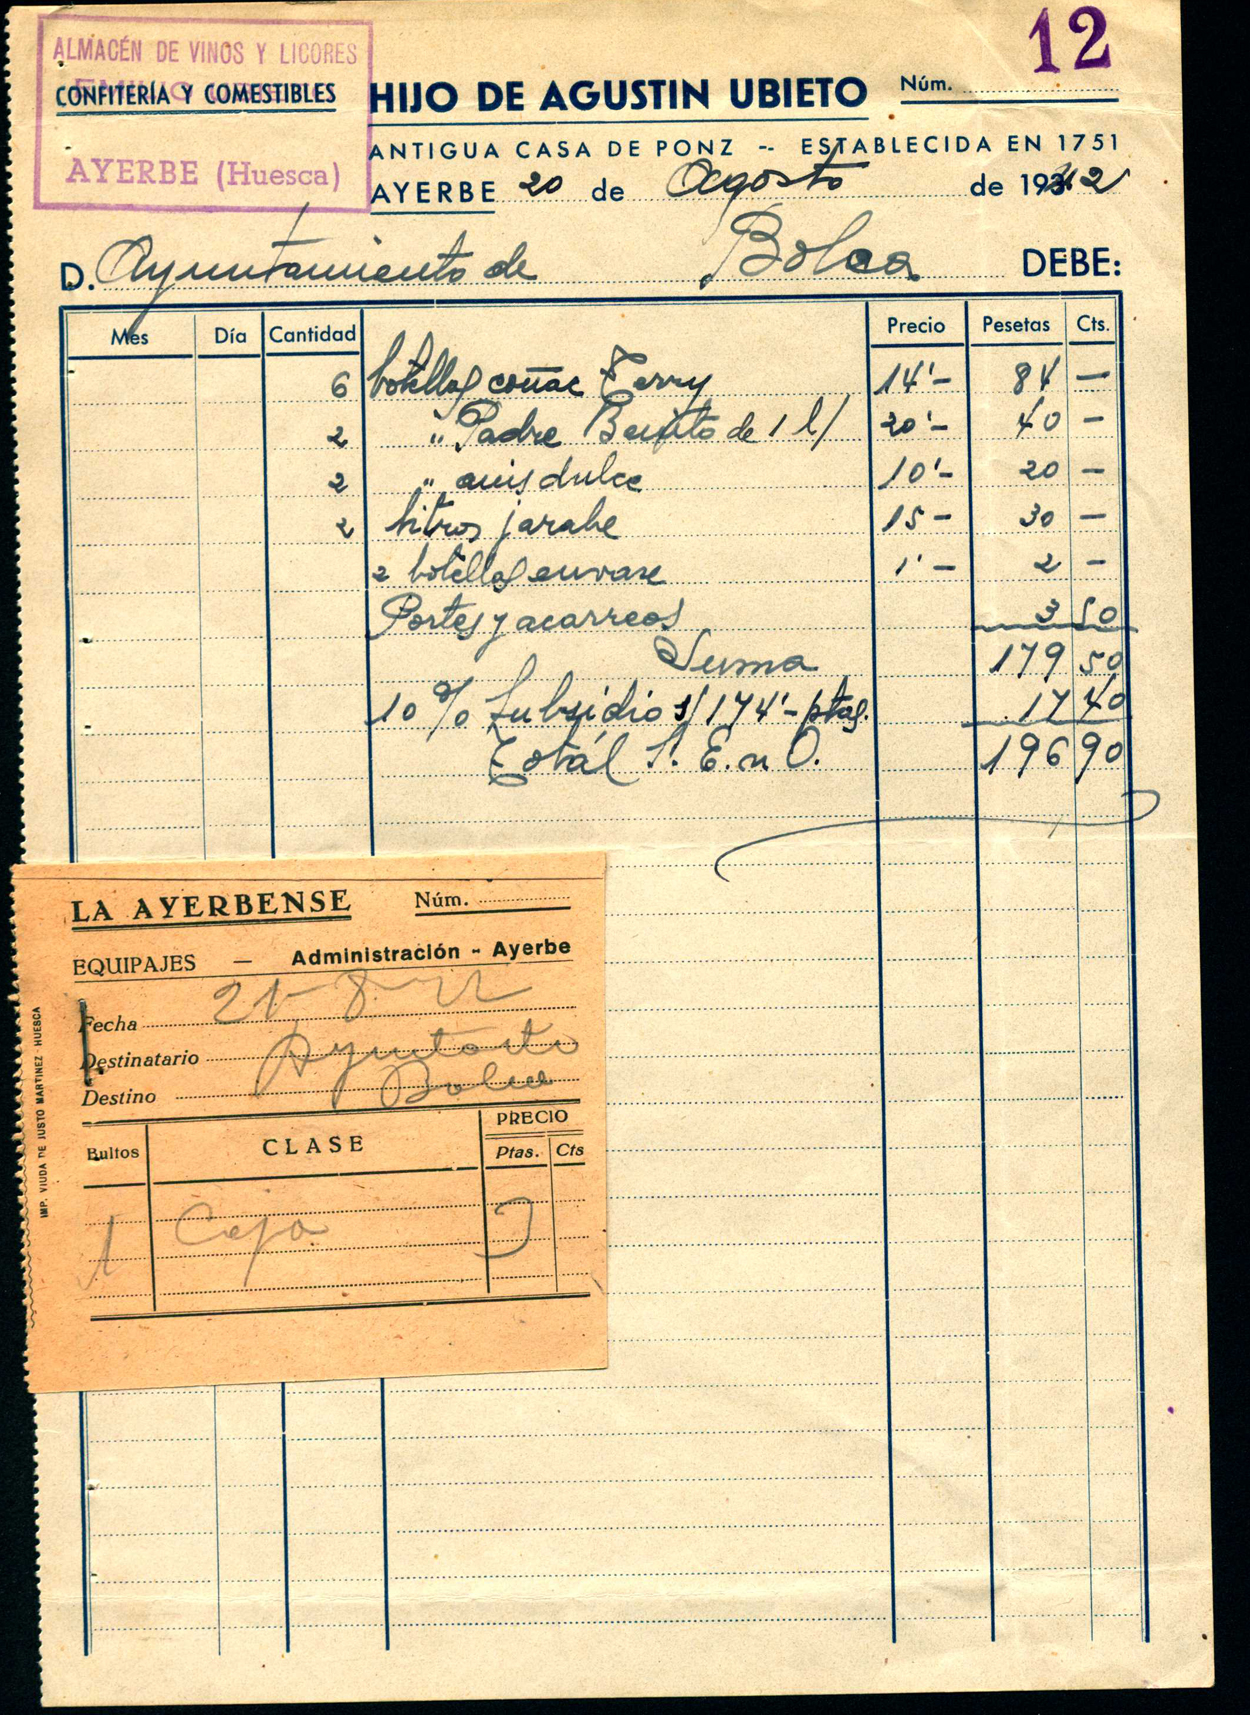 12
ALMACÉN DE VINOS Y LICORES
CONFITERÍA Y COMESTIBLES
AYERBE (Huesca)
HIJO DE AGUSTIN UBIETO Núm.
ANTIGUA CASA DE PONZ -- ESTABLECIDA EN 1751
AYERBE 20 de Agosto de 1942
D. Ayuntamiento de Bolea DEBE:
Mes Día Cantidad Precio Pesetas Cts.
6 botellas coñac Terry 14'- 84 —
2 " Padre Benito de 1 l/ 20'- 40 —
2 " anis dulce 10'- 20 —
2 litros jarabe 15- 30 —
2 botellas envase 1'- 2 —
Portes y acarreos 3 50
Suma 179 50
10% Subsidio s/ 174'- ptas. 17 40
Total S. E. u O. 196 90
LA AYERBENSE Núm.
EQUIPAJES — Administración - Ayerbe
Fecha 21-8-42
Destinatario Ayuntamto
Destino Bolea
Bultos CLASE PRECIO
Ptas. Cts
1 Caja
IMP. VIUDA DE JUSTO MARTINEZ HUESCA